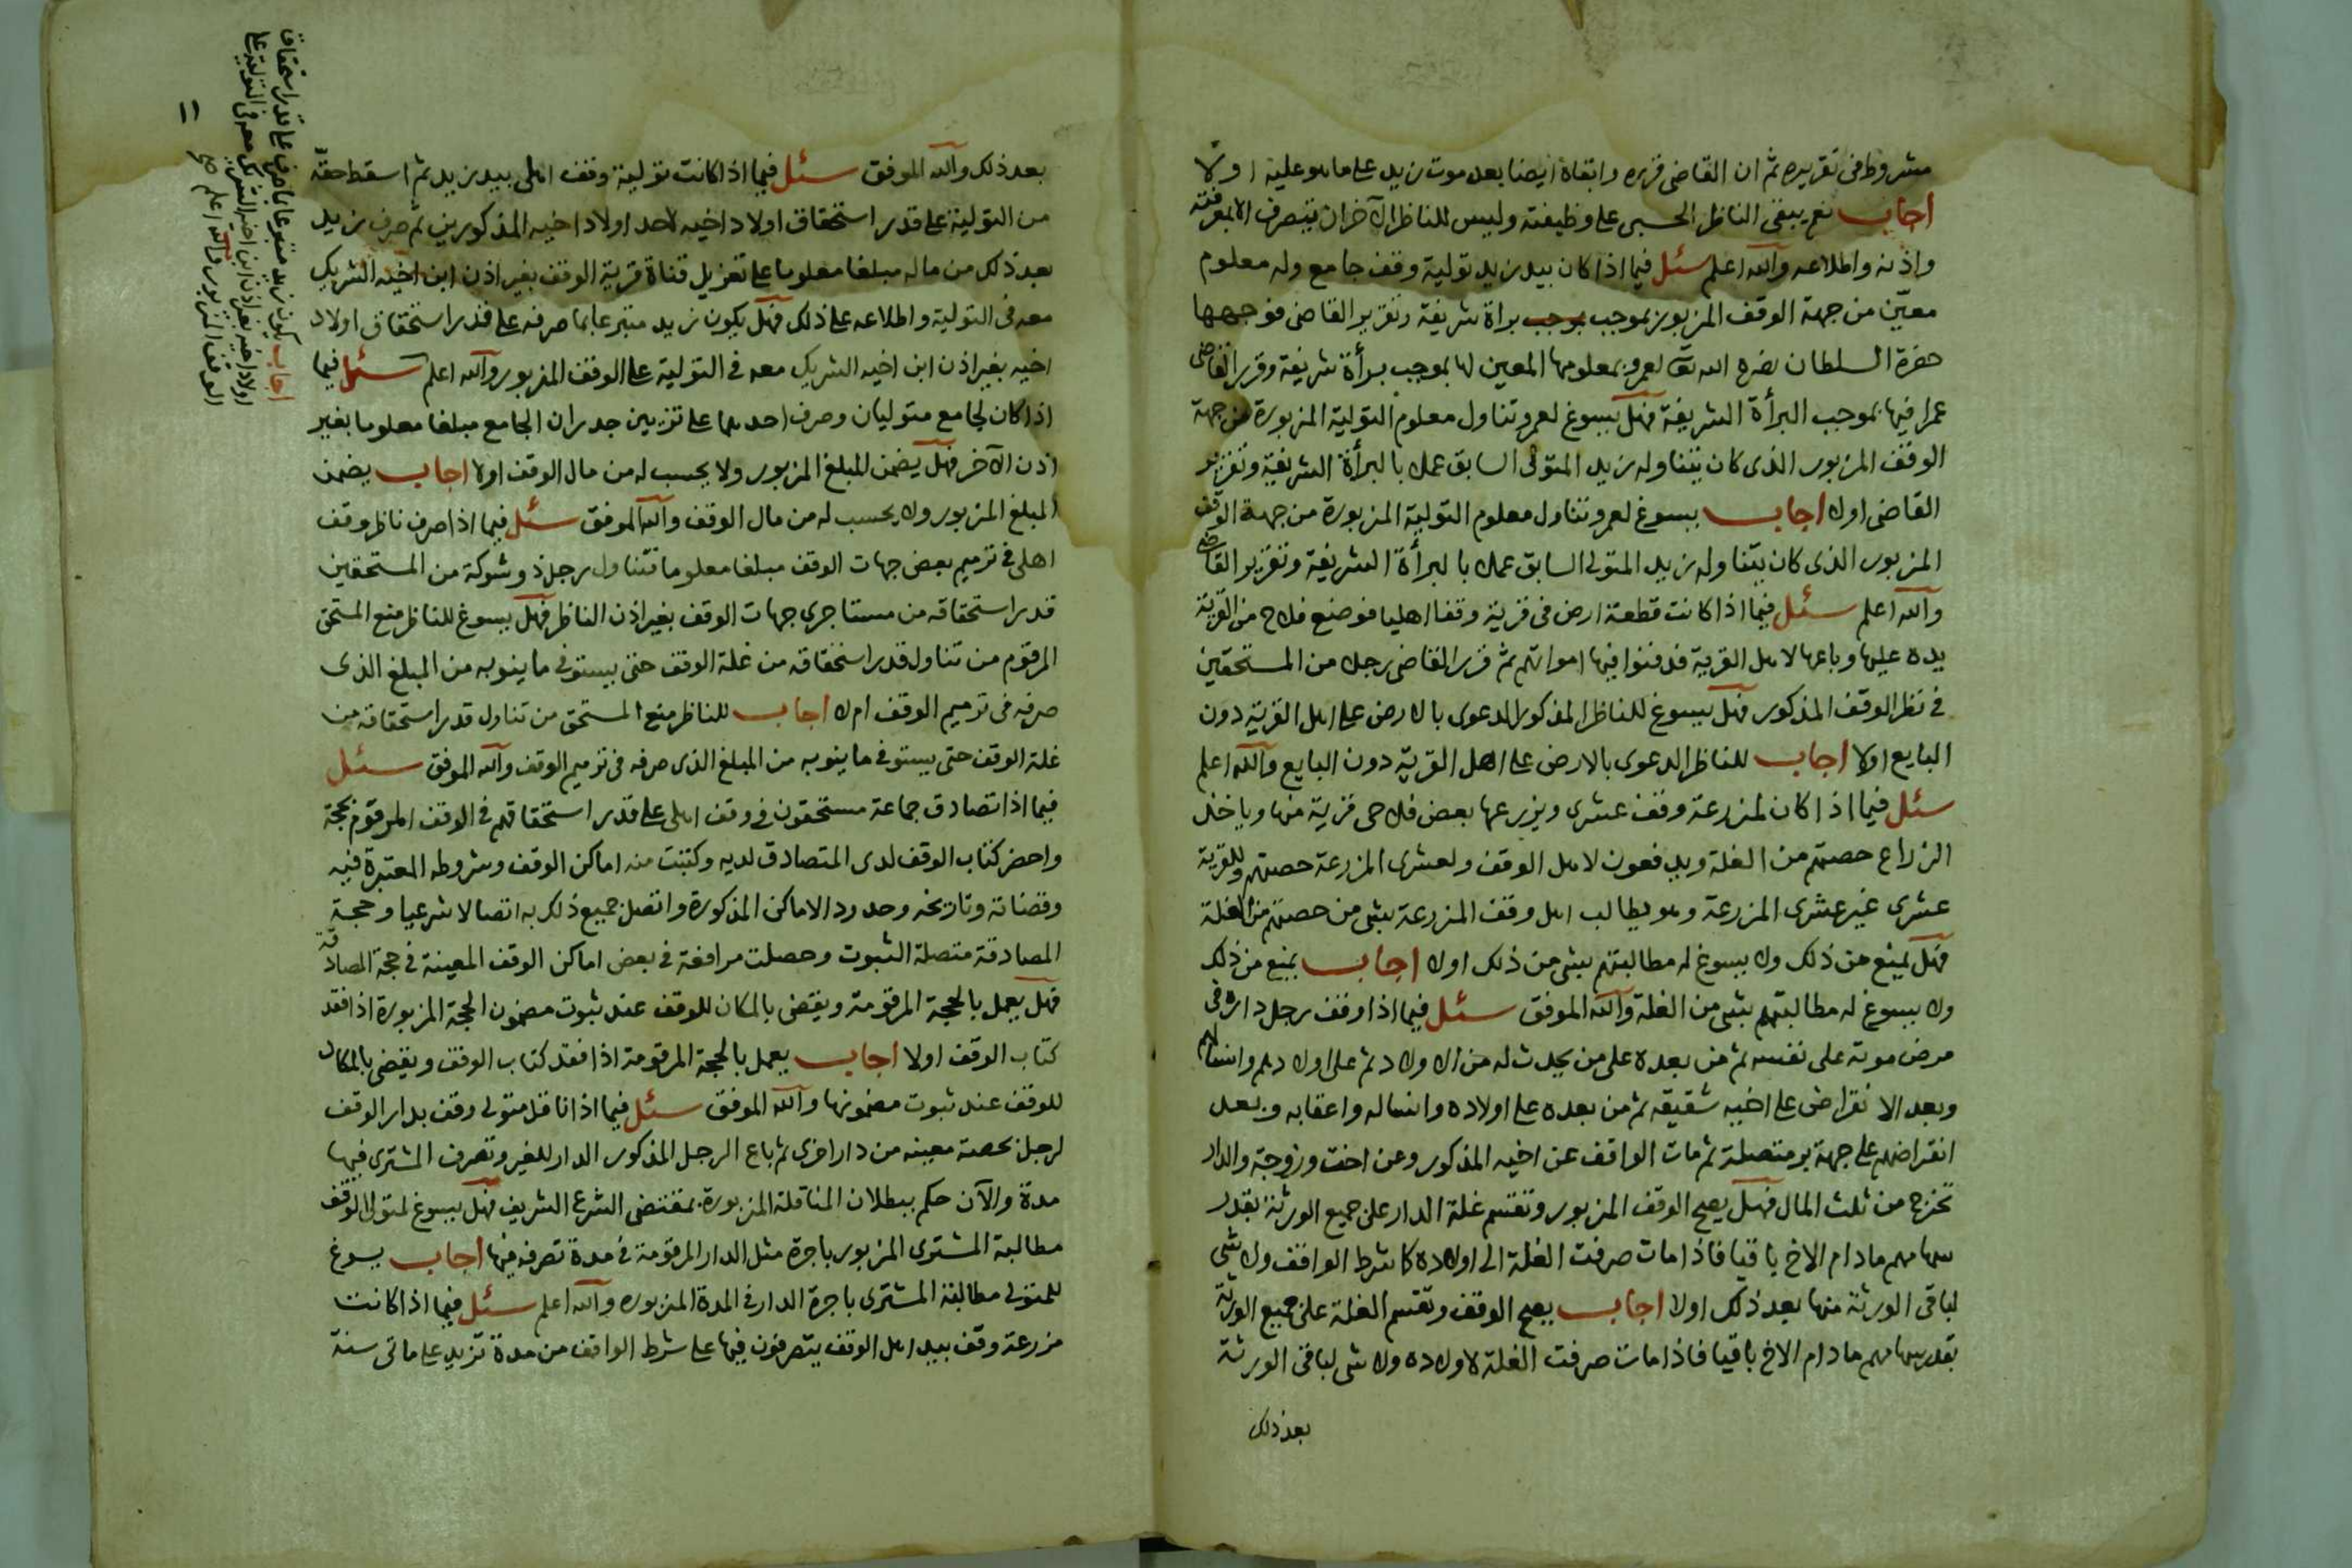 مشروط في تقريره ثم ان القاضي قرره وابقاه ايضا بعد موت زيد على ما هو عليه اولا
اجاب نعم يبقى الناظر الحسبي على وظيفته وليس للناظر الآخر ان يتصرف الا بمعرفته
واذنه واطلاعه والله اعلم سئل فيما اذا كان بيد زيد تولية وقف جامع وله معلوم
معيّن من جهة الوقف المزبور بموجب براة شريفة وتقرير القاضي فوجهها
حضرة السلطان نصره الله تعالى لعمرو بمعلومها المعين لها بموجب برأة شريفة وقرر القاضي
عمرا فيها بموجب البرأة الشريفة فهل يسوغ لعمرو تناول معلوم التولية المزبورة من جهة
الوقف المزبور الذي كان يتناوله زيد المتولى السابق عملا بالبرأة الشريفة وتقرير
القاضي اولا اجاب يسوغ لعمرو تناول معلوم التولية المزبورة من جهة الوقف
المزبور الذي كان يتناوله زيد المتولى السابق عملا بالبرأة الشريفة وتقرير القاضي
والله اعلم سئل فيما اذا كانت قطعة ارض في قرية وقفا اهليا فوضع فلاح من القرية
يده عليها وباعها لاهل القرية فدفنوا فيها امواتهم ثم قرر القاضي رجلا من المستحقين
في نظر الوقف المذكور فهل يسوغ للناظر المذكور الدعوى بالارض على اهل القرية دون
البايع اولا اجاب للناظر الدعوى بالارض على اهل القرية دون البايع والله اعلم
سئل فيما اذا كان لمزرعة وقف عشرى ويزرعها بعض فلاحى قرية منها وياخذ
الزراع حصتهم من الغلة ويدفعون لاهل الوقف ولعشرى المزرعة حصتهم وللقرية
عشرى غير عشرى المزرعة وهو يطالب اهل وقف المزرعة بشى من حصتهم من الغلة
فهل يمنع من ذلك ولا يسوغ له مطالبتهم بشى من ذلك اولا اجاب يمنع من ذلك
ولا يسوغ له مطالبتهم بشى من الغلة والله الموفق سئل فيما اذا وقف رجل داره في
مرض موته على نفسه ثم من بعده على من يحدث له من الاولاد ثم على اولادهم وانسالهم
وبعد الانقراض على اخيه شقيقه ثم من بعده على اولاده وانساله واعقابه وبعد
انقراضهم على جهة بر متصلة ثم مات الواقف عن اخيه المذكور وعن اخت وزوجة والدار
تخرج من ثلث المال فهل يصح الوقف المزبور وتقتسم غلة الدار على جميع الورثة بقدر
سهامهم مادام الاخ باقيا فاذا مات صرفت الغلة الى اولاده كا شرط الواقف ولا شي
لباقى الورثة منها بعد ذلك اولا اجاب يصح الوقف وتقتسم الغلة على جميع الورثة
بقدر سهامهم مادام الاخ باقيا فاذا مات صرفت الغلة لاولاده ولا شى لباقى الورثة
بعد ذلك
١١
بعد ذلك والله الموفق سئل فيما اذا كانت تولية وقف اهلى بيد زيد ثم اسقط حقه
من التولية على قدر استحقاق اولاد اخيه لاحد اولاد اخيه المذكورين ثم صرف زيد
بعد ذلك من ماله مبلغا معلوما على تعزيل قناة قرية الوقف بغير اذن ابن اخيه الشريك
معه في التولية واطلاعه على ذلك فهل يكون زيد متبرعا بما صرفه على قدر استحقاق اولاد
اخيه بغير اذن ابن اخيه الشريك معه في التولية على الوقف المزبور والله اعلم سئل فيما
اذا كان لجامع متوليان وصرف احدهما على تزيين جدران الجامع مبلغا معلوما بغير
اذن الآخر فهل يضمن المبلغ المزبور ولا يحسب له من مال الوقف اولا اجاب يضمن
المبلغ المزبور ولا يحسب له من مال الوقف والله الموفق سئل فيما اذا صرف ناظر وقف
اهلى في ترميم بعض جهات الوقف مبلغا معلوما فتناول رجل ذو شوكة من المستحقين
قدر استحقاقه من مستاجرى جهات الوقف بغير اذن الناظر فهل يسوغ للناظر منع المستحق
المرقوم من تناول قدر استحقاقه من غلة الوقف حتى يستوفى ما ينوبه من المبلغ الذى
صرفه في ترميم الوقف ام لا اجاب للناظر منع المستحق من تناول قدر استحقاقه من
غلة الوقف حتى يستوفى ما ينوبه من المبلغ الذى صرفه في ترميم الوقف والله الموفق سئل
فيما اذا تصادق جماعة مستحقون في وقف اهلى على قدر استحقاقهم في الوقف المرقوم بحجة
واحضر كتاب الوقف لدى المتصادق لديه وكتبت منه اماكن الوقف وشروطه المعتبرة فيه
وقضاته وتاريخه وحدود الاماكن المذكورة واتصل جميع ذلك به اتصالا شرعيا وحجة
المصادقة متصلة الثبوت وحصلت مرافعة في بعض اماكن الوقف المعينة في حجة المصادقة
فهل يعمل بالحجة المرقومة ويقضى بالمكان للوقف عند ثبوت مضمون الحجة المزبورة اذا فقد
كتاب الوقف اولا اجاب يعمل بالحجة المرقومة اذا فقد كتاب الوقف ويقضى بالمكان
للوقف عند ثبوت مضمونها والله الموفق سئل فيما اذا ناقل متولى وقف بدار الوقف
لرجل بحصة معينه من دار اخرى ثم باع الرجل المذكور الدار للغير وتصرف المشترى فيها
مدة والآن حكم ببطلان المناقلة المزبورة بمقتضى الشرع الشريف فهل يسوغ لمتولى الوقف
مطالبة المشترى المزبور باجرة مثل الدار المرقومة في مدة تصرفه فيها اجاب يسوغ
للمتولى مطالبة المشترى باجرة الدار في المدة المزبوره والله اعلم سئل فيما اذا كانت
مزرعة وقف بيد اهل الوقف يتصرفون فيها على شرط الواقف من مدة تزيد على ماتى سنة
اجاب يكون زيد متبرعا بما صرف على قدر استحقاق
اولاد اخيه بغير اذن ابن اخيه الشريك معه في التولية على
الوقف المزبور والله اعلم صح